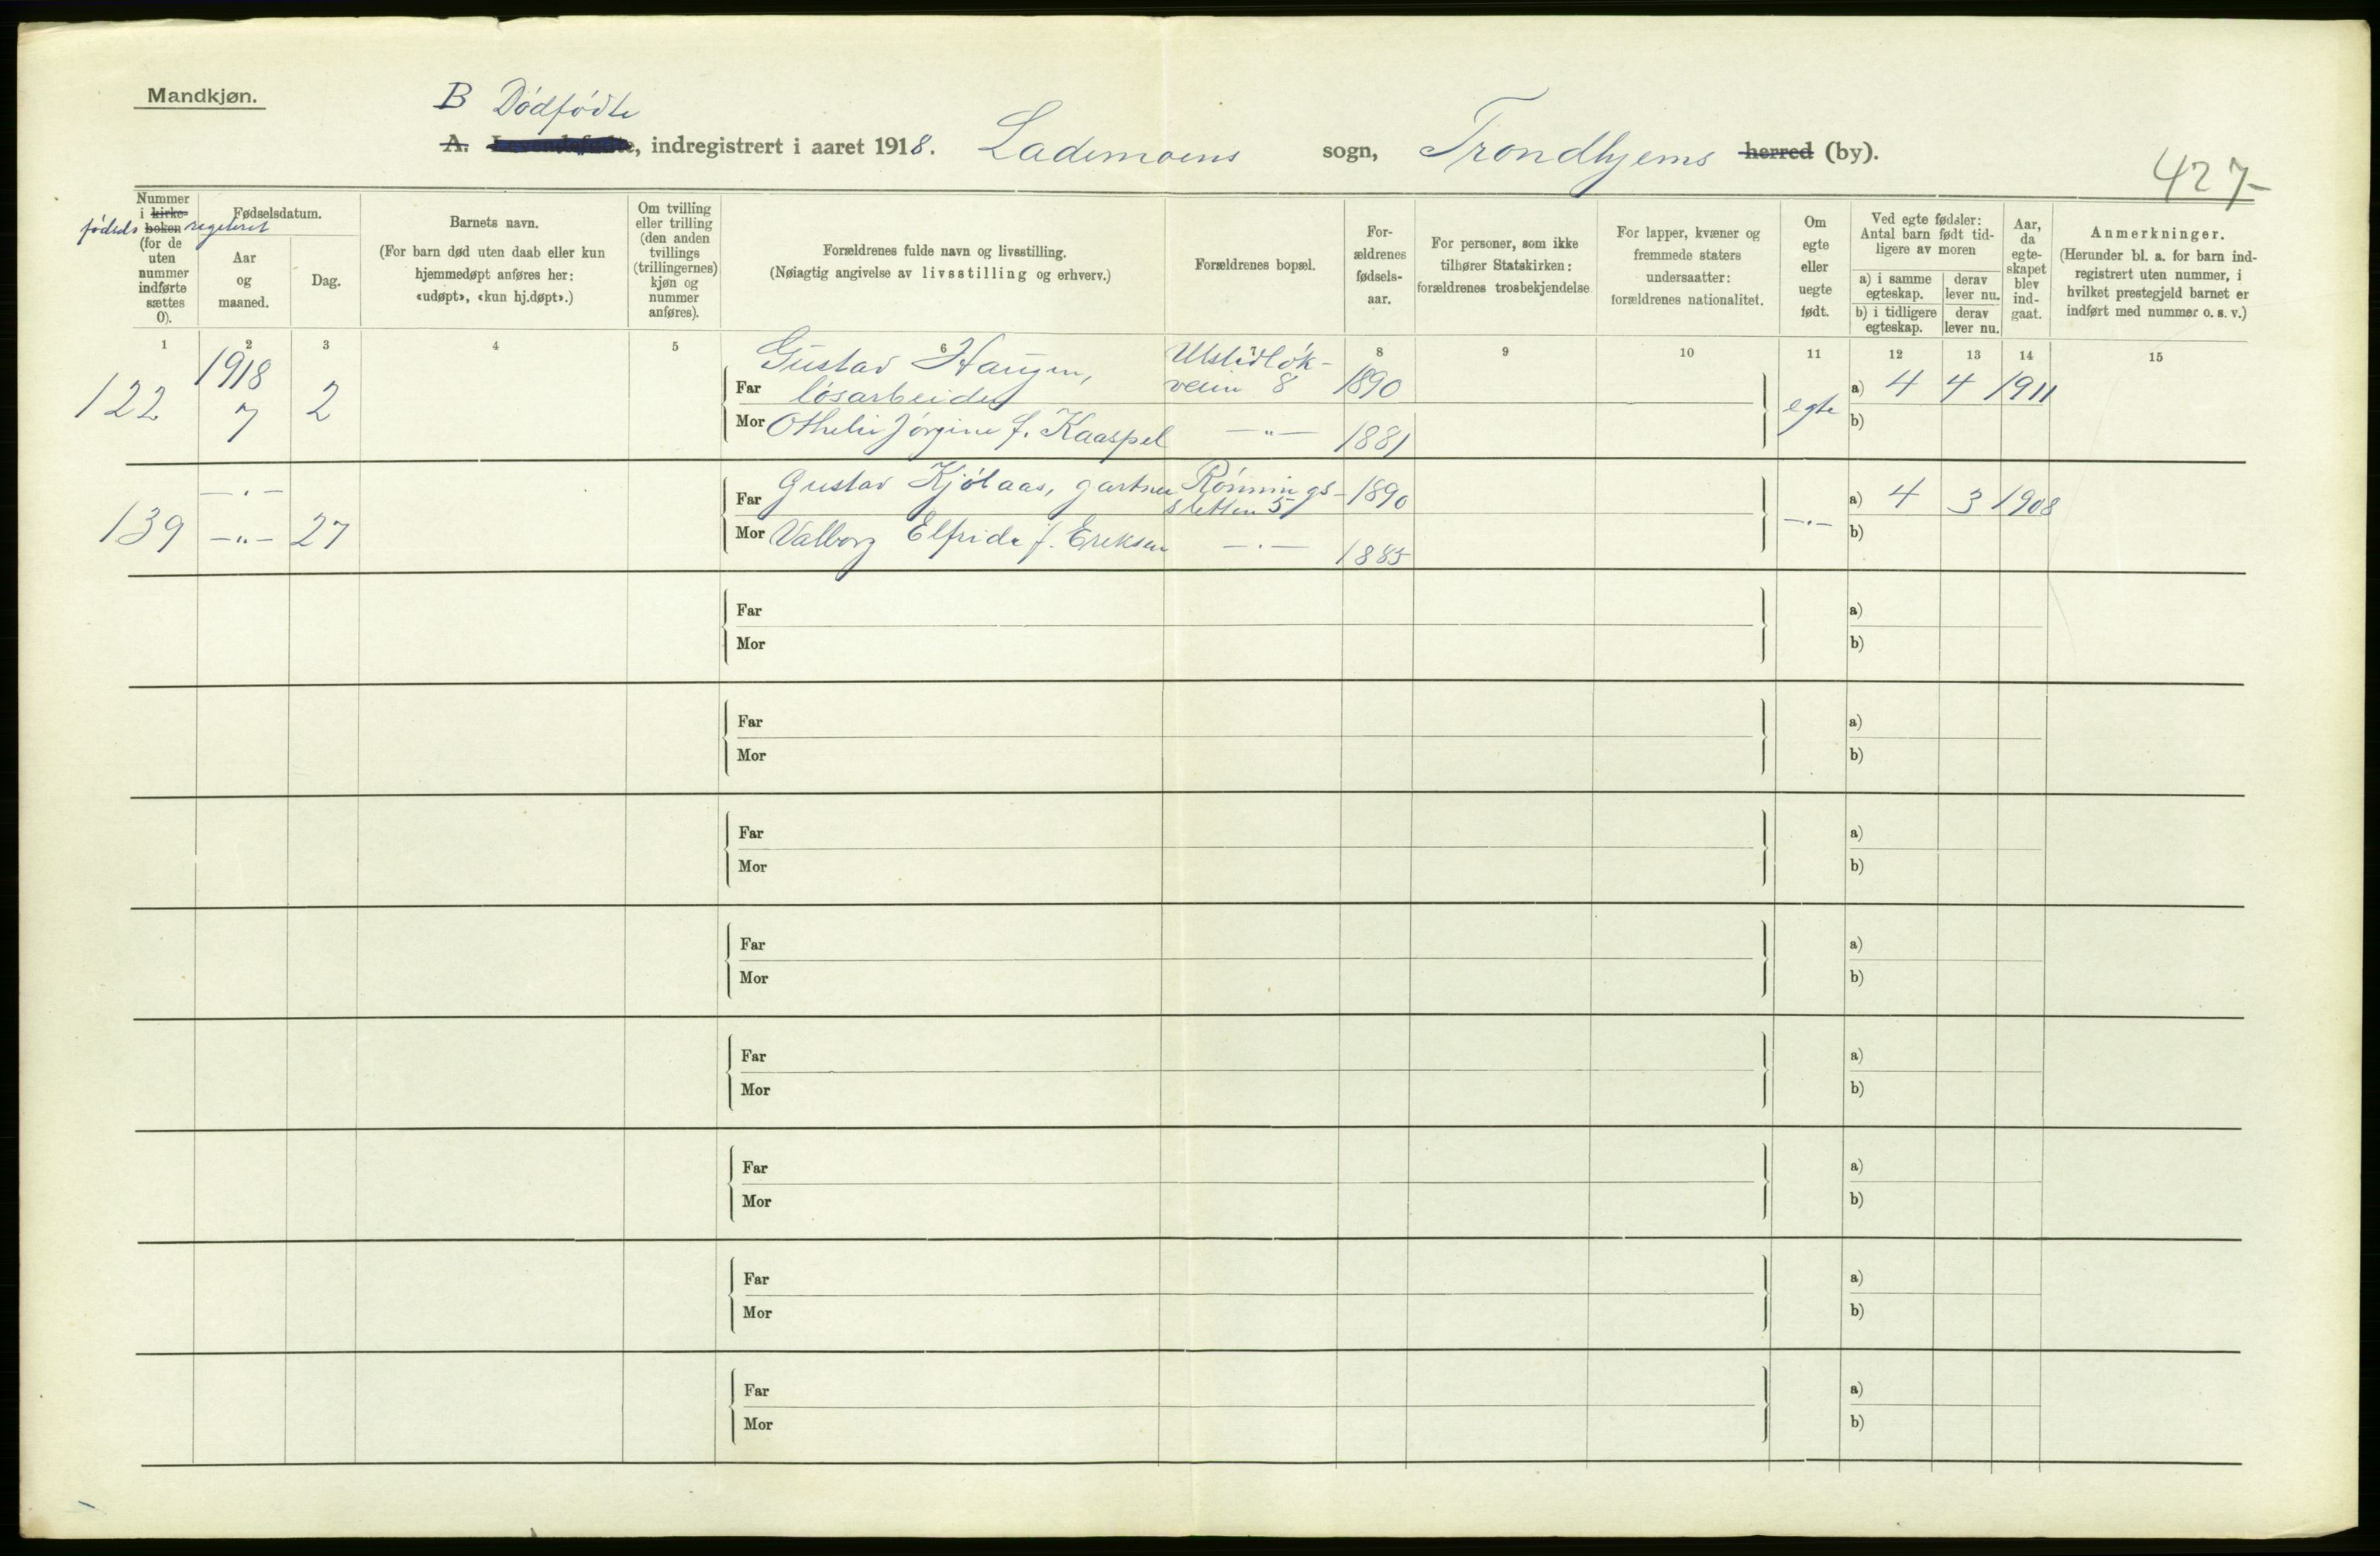 Mandkjøn.
B Dødfødte
A. Levendefødte, indregistrert i aaret 1918. Lademoens sogn, Trondhjems herred (by).
427
Nummer i kirkeboken fødselsregisteret (for de uten nummer indførte sættes 0).
Fødselsdatum.
Aar og maaned.
Dag.
Barnets navn.
(For barn død uten daab eller kun hjemmedøpt anføres her: «udøpt», «kun hj.døpt».)
Om tvilling eller trilling (den anden tvillings (trillingernes) kjøn og nummer anføres).
Forældrenes fulde navn og livsstilling.
(Nøiagtig angivelse av livsstilling og erhverv.)
Forældrenes bopæl.
Forældrenes fødselsaar.
For personer, som ikke tilhører Statskirken: forældrenes trosbekjendelse
For lapper, kvæner og fremmede staters undersaatter: forældrenes nationalitet.
Om egte eller uegte født.
Ved egte fødsler: Antal barn født tidligere av moren
a) i samme egteskap.
derav lever nu.
b) i tidligere egteskap.
derav lever nu.
Aar, da egteskapet blev indgaat.
Anmerkninger.
(Herunder bl. a. for barn indregistrert uten nummer, i hvilket prestegjeld barnet er indført med nummer o. s. v.)
1 2 3 4 5 6 7 8 9 10 11 12 13 14 15
122 1918 7 2
Far Gustav Haugen, løsarbeider veien 8 1890
Mor Othelie Jørgine f. Kaaspel —"— 1881
egte a) 4 4 1911
b)
139 —"— —"— 27
Far Gustav Kjølaas, gartner Rønningsletten 5 1890
Mor Valborg Elfride f. Eriksen —"— 1885
—"— a) 4 3 1908
b)
Far a)
Mor b)
Far a)
Mor b)
Far a)
Mor b)
Far a)
Mor b)
Far a)
Mor b)
Far a)
Mor b)
Far a)
Mor b)
Far a)
Mor b)